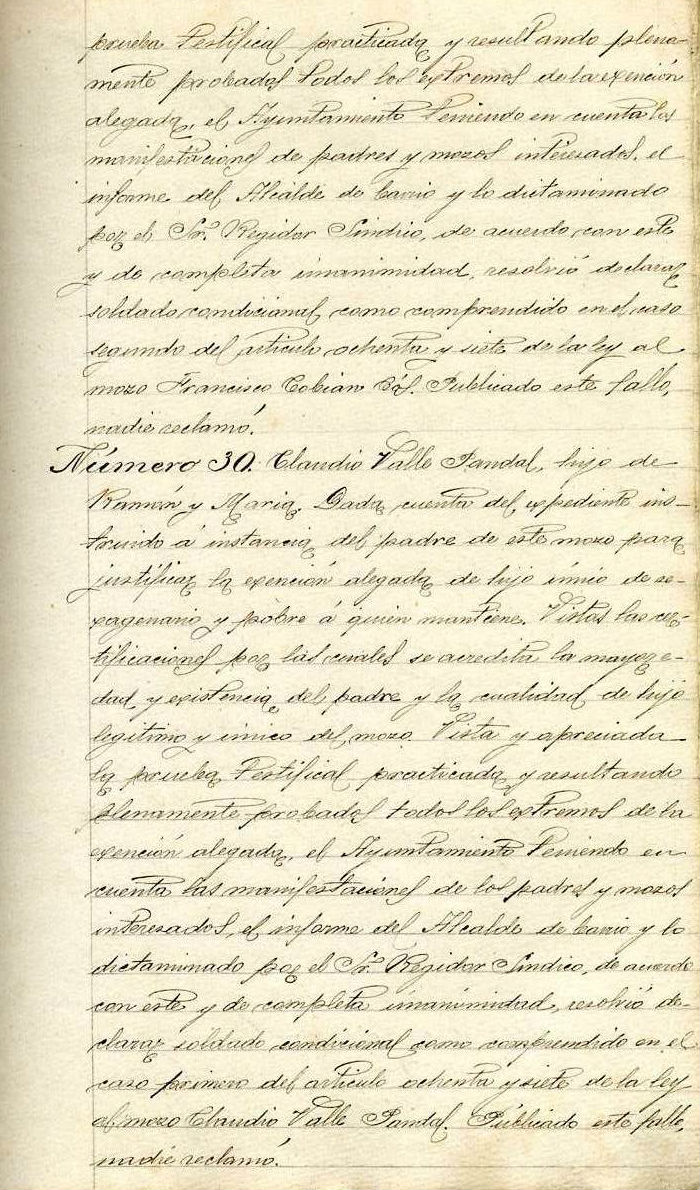 prueba testifical practicada y resultando plena-
mente probados todos los extremos de la exención
alegada, el Ayuntamiento teniendo en cuenta las
manifestaciones de padres y mozos interesados, el
informe del Alcalde de barrio y lo dictaminado
por el Sr. Regidor Síndico, de acuerdo con este
y de completa unanimidad, resolvió declarar
soldado condicional como comprendido en el caso
segundo del artículo ochenta y siete de la ley al
mozo Francisco Cobián Publicado este fallo,
nadie reclamó.
Número 30. Claudio Valle Pandal, hijo de
Ramón y María. Dada cuenta del expediente ins-
truido á instancia del padre de este mozo para
justificar la exención alegada de hijo único de se-
xagenario y pobre á quien mantiene. Vistas las cer-
tificaciones por las cuales se acredita la mayor e-
dad y existencia del padre y la cualidad de hijo
legítimo y único del mozo. Vista y apreciada
la prueba testifical practicada y resultando
plenamente probados todos los extremos de la
exención alegada, el Ayuntamiento teniendo en
cuenta las manifestaciones de los padres y mozos
interesados, el informe del Alcalde de barrio y lo
dictaminado por el Sr. Regidor Síndico, de acuerdo
con este y de completa unanimidad, resolvió de-
clarar soldado condicional como comprendido en el
caso primero del artículo ochenta y siete de la ley
al mozo Claudio Valle Pandal. Publicado este fallo,
nadie reclamó.